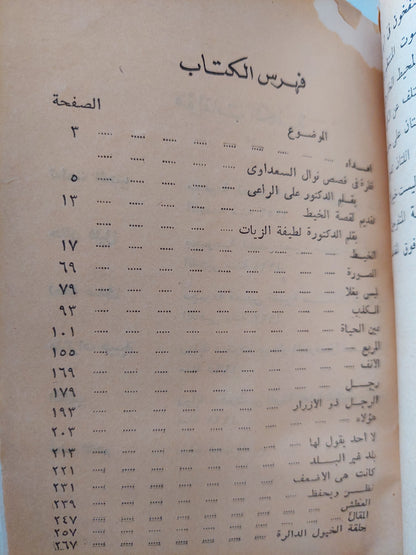 فهرس الكتاب
الموضوع الصفحة
اهداء ..... ٣
نظرة فى قصص نوال السعداوى
بقلم الدكتور على الراعى ..... ٥
تقديم لقصة الخيط
بقلم الدكتورة لطيفة الزيات ..... ١٣
الخيط ..... ١٧
الصورة ..... ٦٩
ليس بغلا ..... ٧٩
الكذب ..... ٩٣
عين الحياة ..... ١٠١
المربع ..... ١٥٥
الأنف ..... ١٦٩
رجل ..... ١٧٩
الرجل ذو الأزرار ..... ١٩٣
هؤلاء ..... ٢٠٣
لا احد يقول لها ..... ٢١٣
بلد غير البلد ..... ٢٢١
كانت هى الأضعف ..... ٢٣١
نظر ويحفظ ..... ٢٣٩
العطش ..... ٢٤٧
المقال ..... ٢٥٧
حلقة الخيول الدائرة ..... ٢٦٧